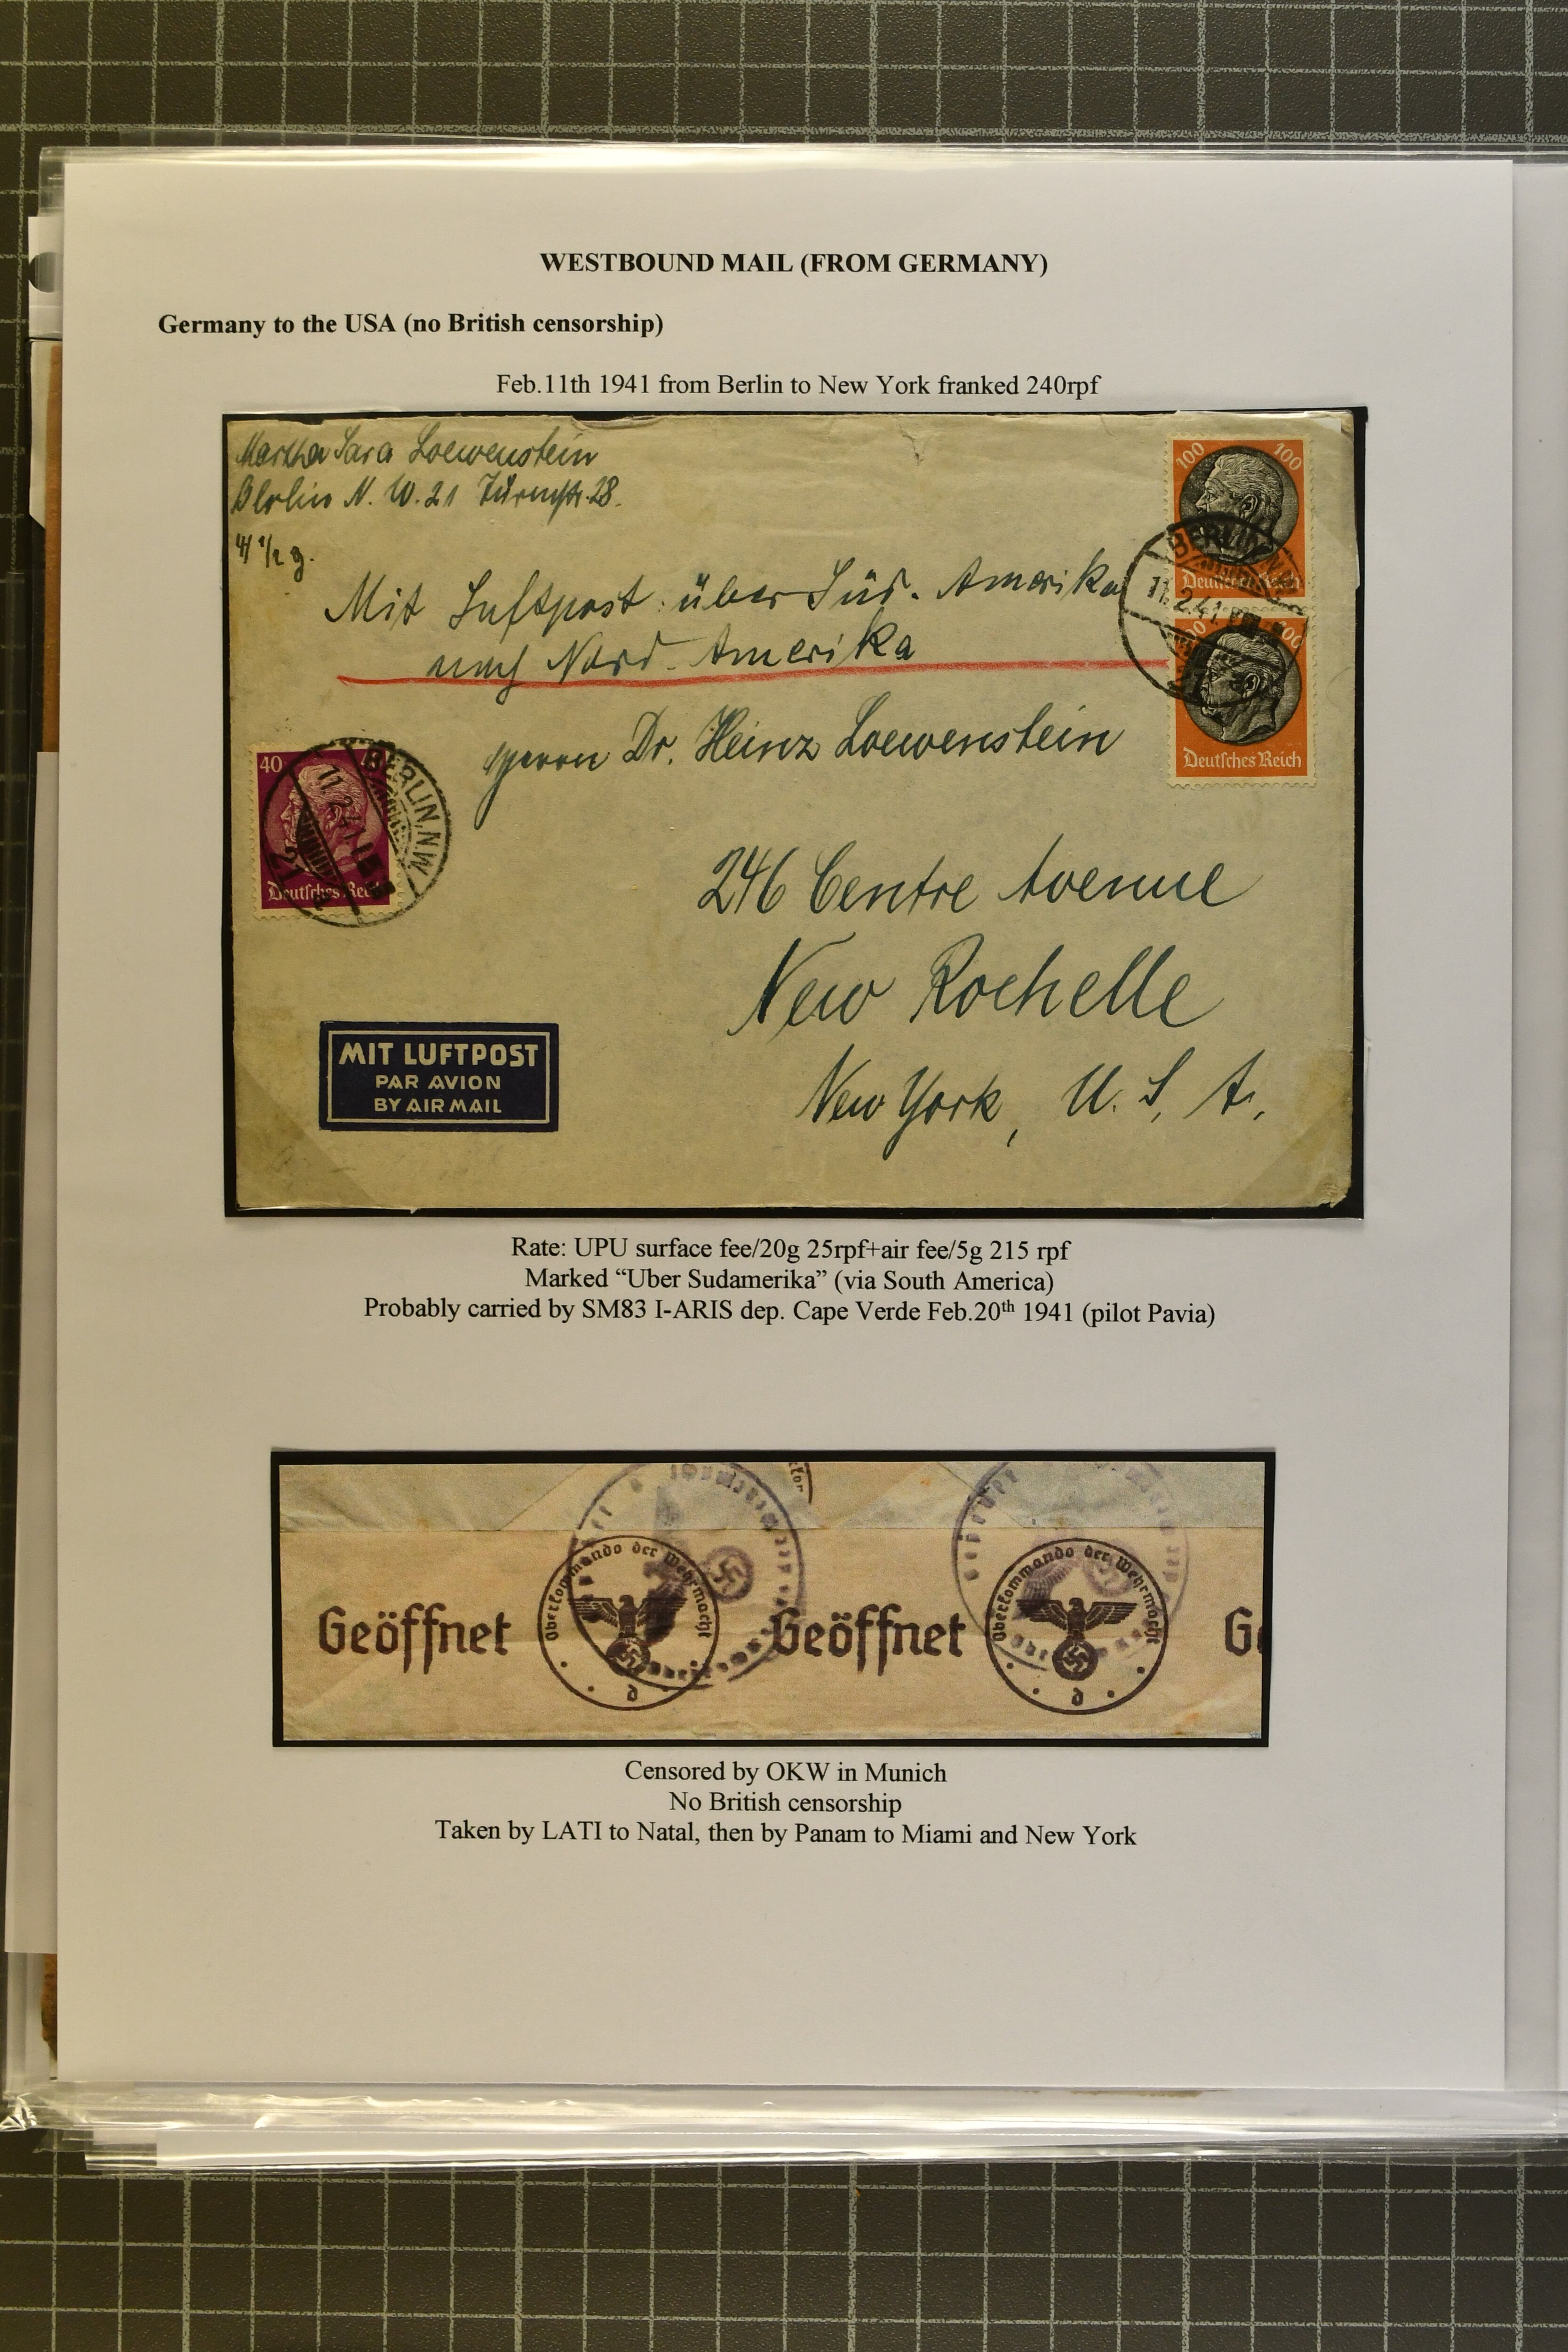 WESTBOUND MAIL (FROM GERMANY)
Germany to the USA (no British censorship)
Feb.11th 1941 from Berlin to New York franked 240rpf
Martha Sara Loewenstein
Berlin N. W. 21 Türmstr. 28.
4 1/2 g.
Mit Luftpost über Süd-Amerika
nach Nord-Amerika
Herrn Dr. Heinz Loewenstein
246 Centre Avenue
New Rochelle
New York, U. S. A.
100 100
Deutsches Reich
BERLIN NW
11.2.41
00
Deutsches Reich
40
Deutsches Reich
BERLIN NW
11.2.41
21
MIT LUFTPOST
PAR AVION
BY AIR MAIL
Rate: UPU surface fee/20g 25rpf+air fee/5g 215 rpf
Marked “Uber Sudamerika” (via South America)
Probably carried by SM83 I-ARIS dep. Cape Verde Feb.20th 1941 (pilot Pavia)
Geöffnet
Oberkommando der Wehrmacht
d
Geöffnet
Oberkommando der Wehrmacht
d
G
Censored by OKW in Munich
No British censorship
Taken by LATI to Natal, then by Panam to Miami and New York